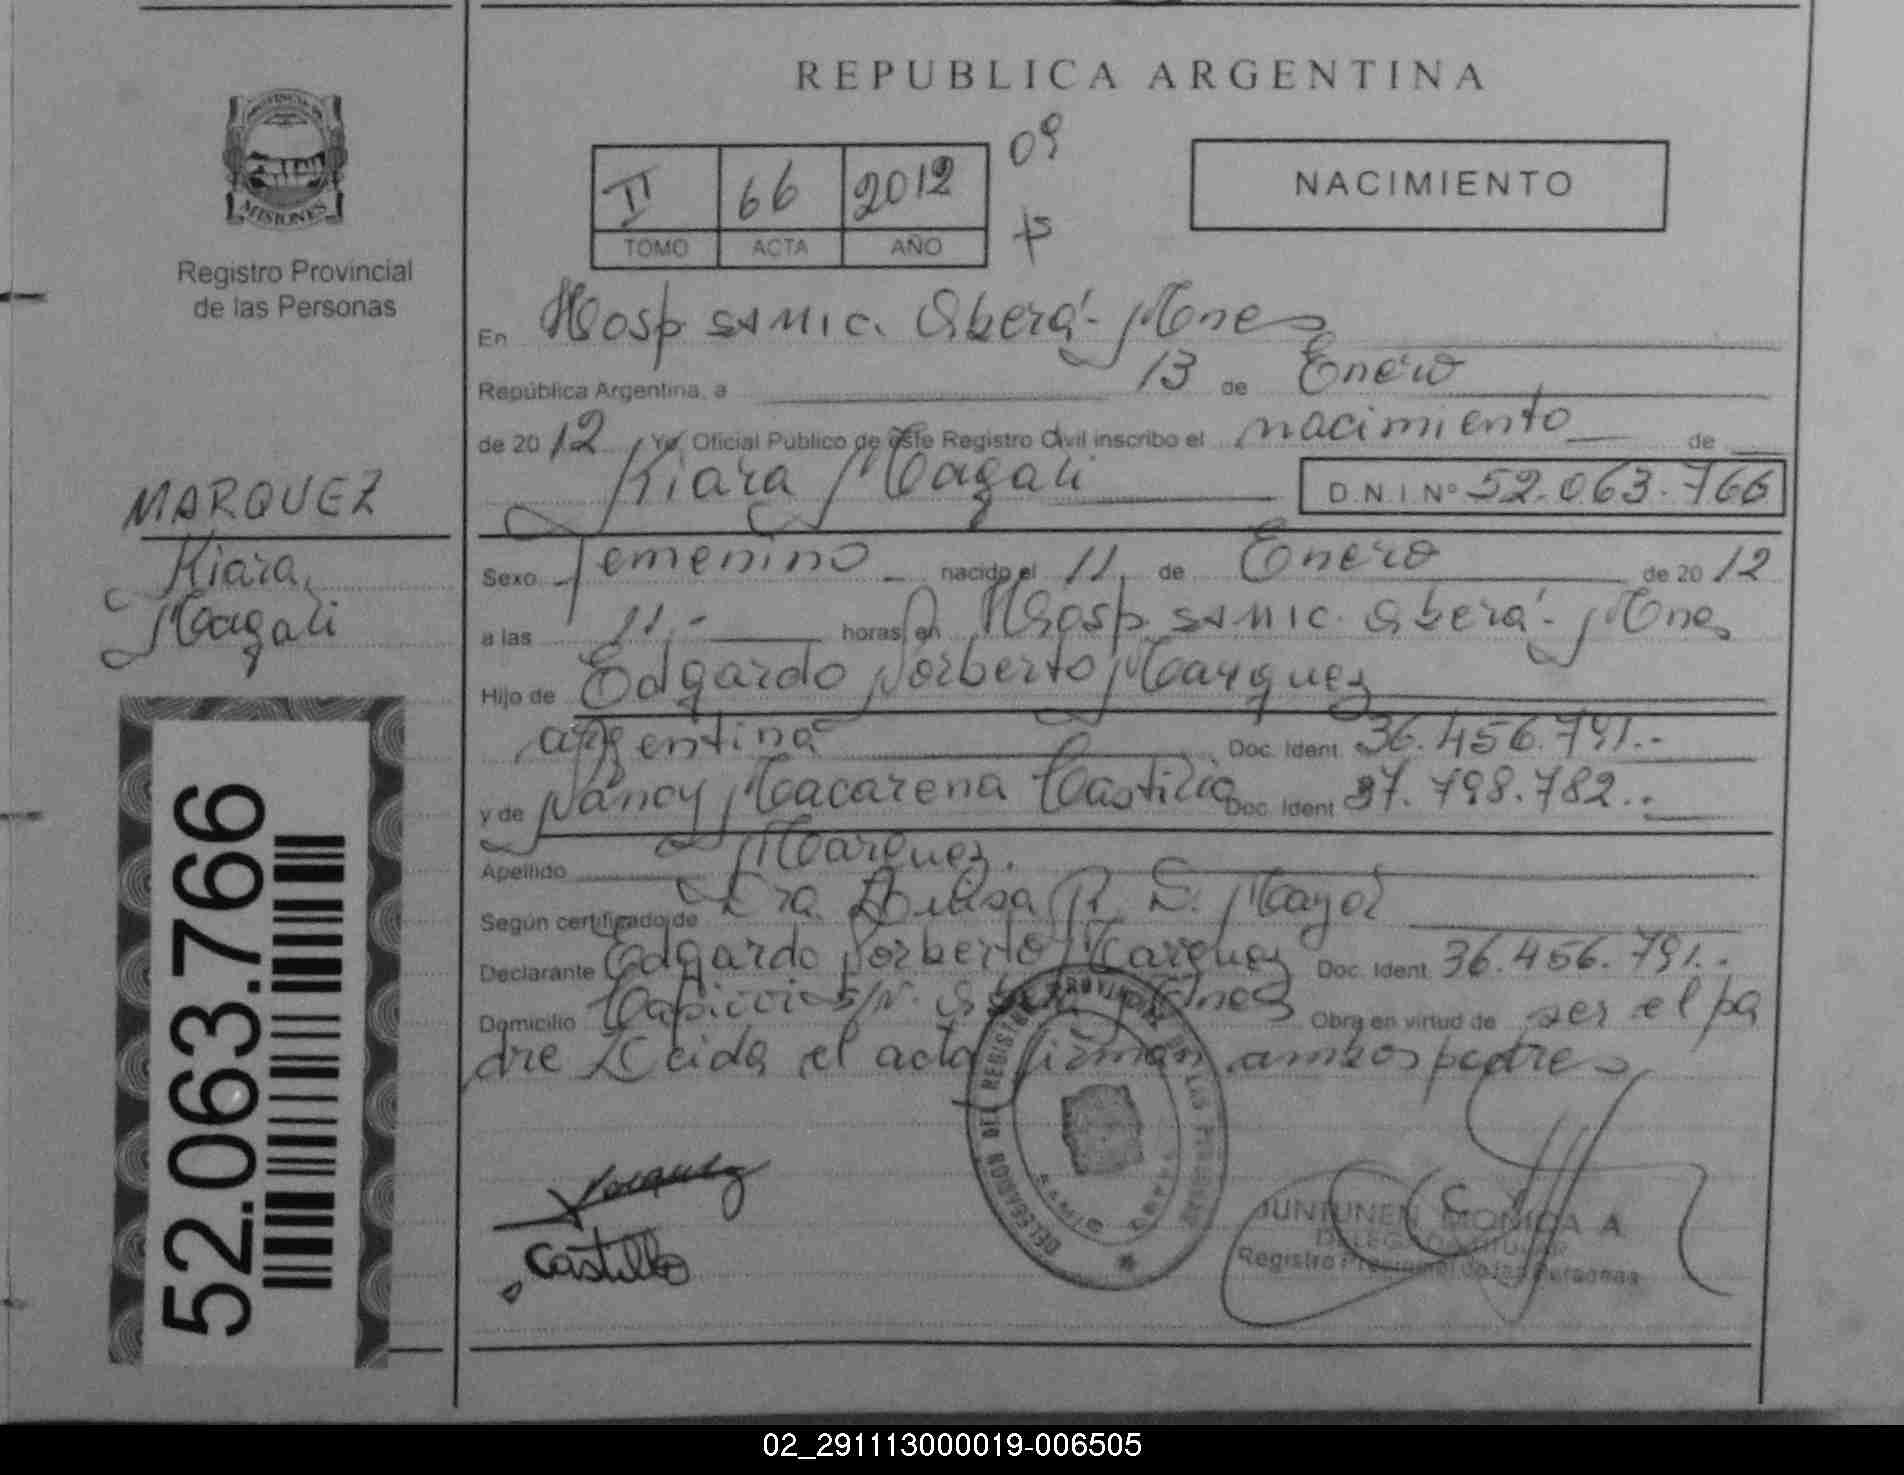 REPUBLICA ARGENTINA
PROVINCIA DE
MISIONES
Registro Provincial
de las Personas
II 66 2012 09
TOMO ACTA AÑO
NACIMIENTO
En Hosp SAMIC. Oberá - Mnes
República Argentina, a 13 de Enero
de 20 12 Yo, Oficial Público de este Registro Civil inscribo el nacimiento de
Kiara Magali D.N.I Nº 52.063.766
MARQUEZ
Kiara
Magali
Sexo femenino nacido el 11 de Enero de 20 12
a las 11.- horas, en Hosp SAMIC. Oberá - Mnes
Hijo de Edgardo Norberto Marquez
argentina Doc. Ident. 36.456.791.-
y de Nancy Macarena Castillo Doc. Ident 37.798.782.-
Apellido Marquez.
Según certificado de Dra. R. D. Mayol
Declarante Edgardo Norberto Marquez Doc. Ident. 36.456.791.-
Domicilio S/N. Oberá Mnes Obra en virtud de ser el pa
dre Leida el acta firman ambos padres
52.063.766
DELEGACION DEL REGISTRO PROVINCIAL DE LAS PERSONAS
OBERA
Marquez
Castillo
JUNTUNEN MONICA A.
DELEGADA TITULAR
Registro Provincial de las Personas
02_291113000019-006505